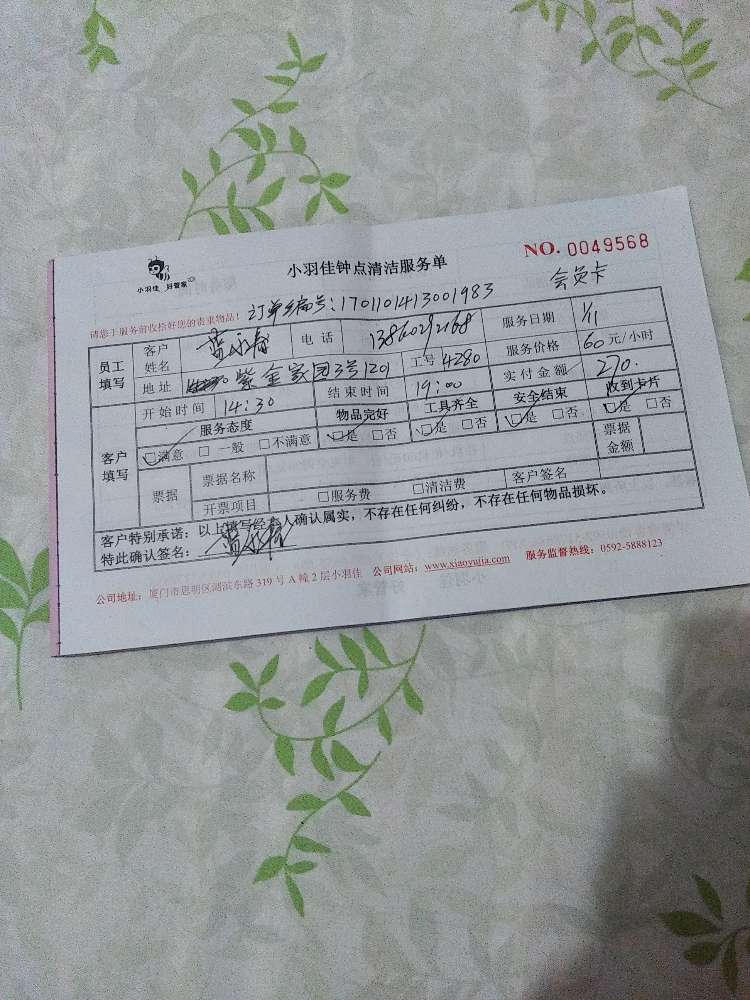 小羽佳 好管家
小羽佳钟点清洁服务单
NO. 0049568
请您于服务前收拾好您的贵重物品!
订单编号:1701101413001983
会员卡
员工填写 客户姓名 电话 服务日期 1/11
地址 紫金家园3号1201 工号 4280 服务价格 60元/小时
客户填写 开始时间 14:30 结束时间 19:00 实付金额 270.
服务态度 物品完好 工具齐全 安全结束 收到卡片
☑满意 □一般 □不满意 ☑是 □否 ☑是 □否 ☑是 □否 ☑是 □否
票据 票据名称 票据金额
开票项目 □服务费 □清洁费 客户签名
客户特别承诺:以上填写经本人确认属实,不存在任何纠纷,不存在任何物品损坏。
特此确认签名:
公司地址:厦门市思明区湖滨东路319号A幢2层小羽佳 公司网站:www.xiaoyujia.com 服务监督热线:0592-5888123